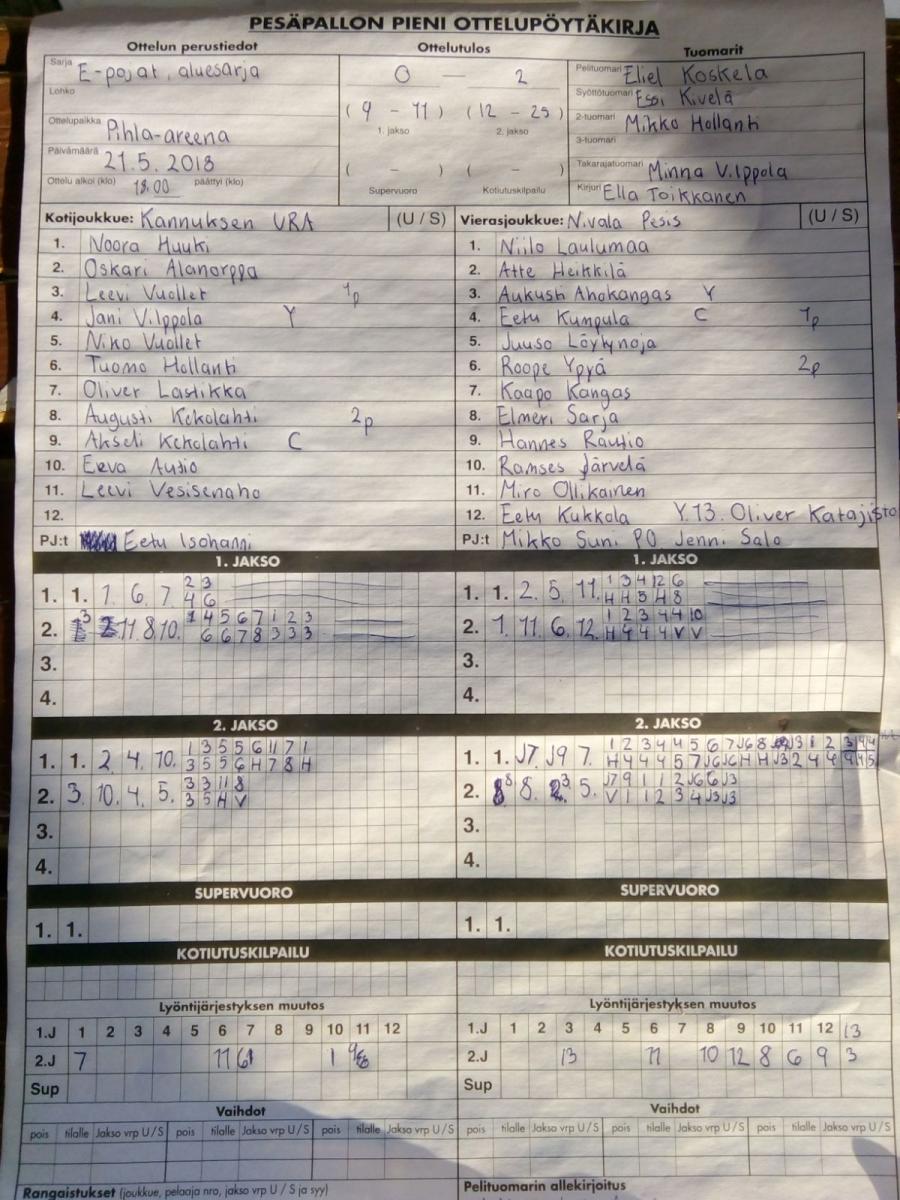 PESÄPALLON PIENI OTTELUPÖYTÄKIRJA
Ottelun perustiedot
Sarja E-pojat, aluesarja
Lohko
Ottelupaikka Pihla-areena
Päivämäärä 21.5.2018
Ottelu alkoi (klo) 18.00 päättyi (klo)
Ottelutulos
0 — 2
(9 - 11) (12 - 25)
1. jakso 2. jakso
( - ) ( - )
Supervuoro Kotiutuskilpailu
Tuomarit
Pelituomari Eliel Koskela
Syöttötuomari Essi Kivelä
2-tuomari Mikko Hollanti
3-tuomari
Takarajatuomari Minna Vilppola
Kirjuri Ella Toikkanen
Kotijoukkue: Kannuksen URA (U / S)
1. Noora Huuki
2. Oskari Alanorppa
3. Leevi Vuollet 1p
4. Jani Vilppola Y
5. Niko Vuollet
6. Tuomo Hollanti
7. Oliver Lastikka
8. Augusti Kekolahti 2p
9. Akseli Kekolahti C
10. Eeva Autio
11. Leevi Vesisenaho
12.
PJ:t Eetu Isohanni
Vierasjoukkue: Nivala Pesis (U / S)
1. Niilo Laulumaa
2. Atte Heikkilä
3. Aukusti Ahokangas Y
4. Eetu Kumpula C 1p
5. Juuso Löytynoja
6. Roope Ypyä 2p
7. Kaapo Kangas
8. Elmeri Sarja
9. Hannes Rautio
10. Ramses Järvelä
11. Miro Ollikainen
12. Eetu Kukkola Y 13. Oliver Katajisto
PJ:t Mikko Suni PO Jenni Salo
1. JAKSO
1. 1. 1. 6. 7.
2 3
4 6
2. 11. 8. 10.
1 4 5 6 7 1 2 3
6 6 7 8 3 3 3
3.
4.
1. JAKSO
1. 1. 2. 5. 11.
1 3 4 12 6
H H 5 H 8
2. 1. 11. 6. 12.
1 2 3 4 4 10
H 4 4 4 V V
3.
4.
2. JAKSO
1. 1. 2. 4. 10.
1 3 5 5 6 11 7 1
3 5 5 6 H 7 8 H
2. 3. 10. 4. 5.
3 3 11 8
3 5 H V
3.
4.
2. JAKSO
1. 1. J7 J9 7.
2. 8. 5.
J7 9 1 1 2 J6 6 J3
V 1 1 2 3 4 J3 J3
3.
4.
SUPERVUORO
1. 1.
SUPERVUORO
1. 1.
KOTIUTUSKILPAILU
KOTIUTUSKILPAILU
Lyöntijärjestyksen muutos
1.J 1 2 3 4 5 6 7 8 9 10 11 12
2.J 7 11 1
Sup
Lyöntijärjestyksen muutos
1.J 1 2 3 4 5 6 7 8 9 10 11 12 13
2.J 13 11 10 12 8 6 9 3
Sup
Vaihdot
pois tilalle Jakso vrp U / S pois tilalle Jakso vrp U / S pois tilalle Jakso vrp U / S
Vaihdot
pois tilalle Jakso vrp U / S pois tilalle Jakso vrp U / S pois tilalle Jakso vrp U / S
Rangaistukset (joukkue, pelaaja nro, jakso vrp U / S ja syy)
Pelituomarin allekirjoitus